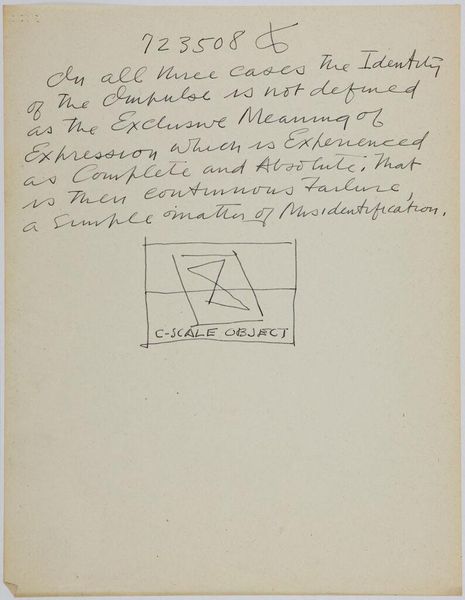 723508
In all three cases the Identity
of the Impulse is not defined
as the Exclusive Meaning of
Expression which is Experienced
as Complete and Absolute; that
is then continuous Failure,
a simple matter of Misidentification.
C-SCALE OBJECT